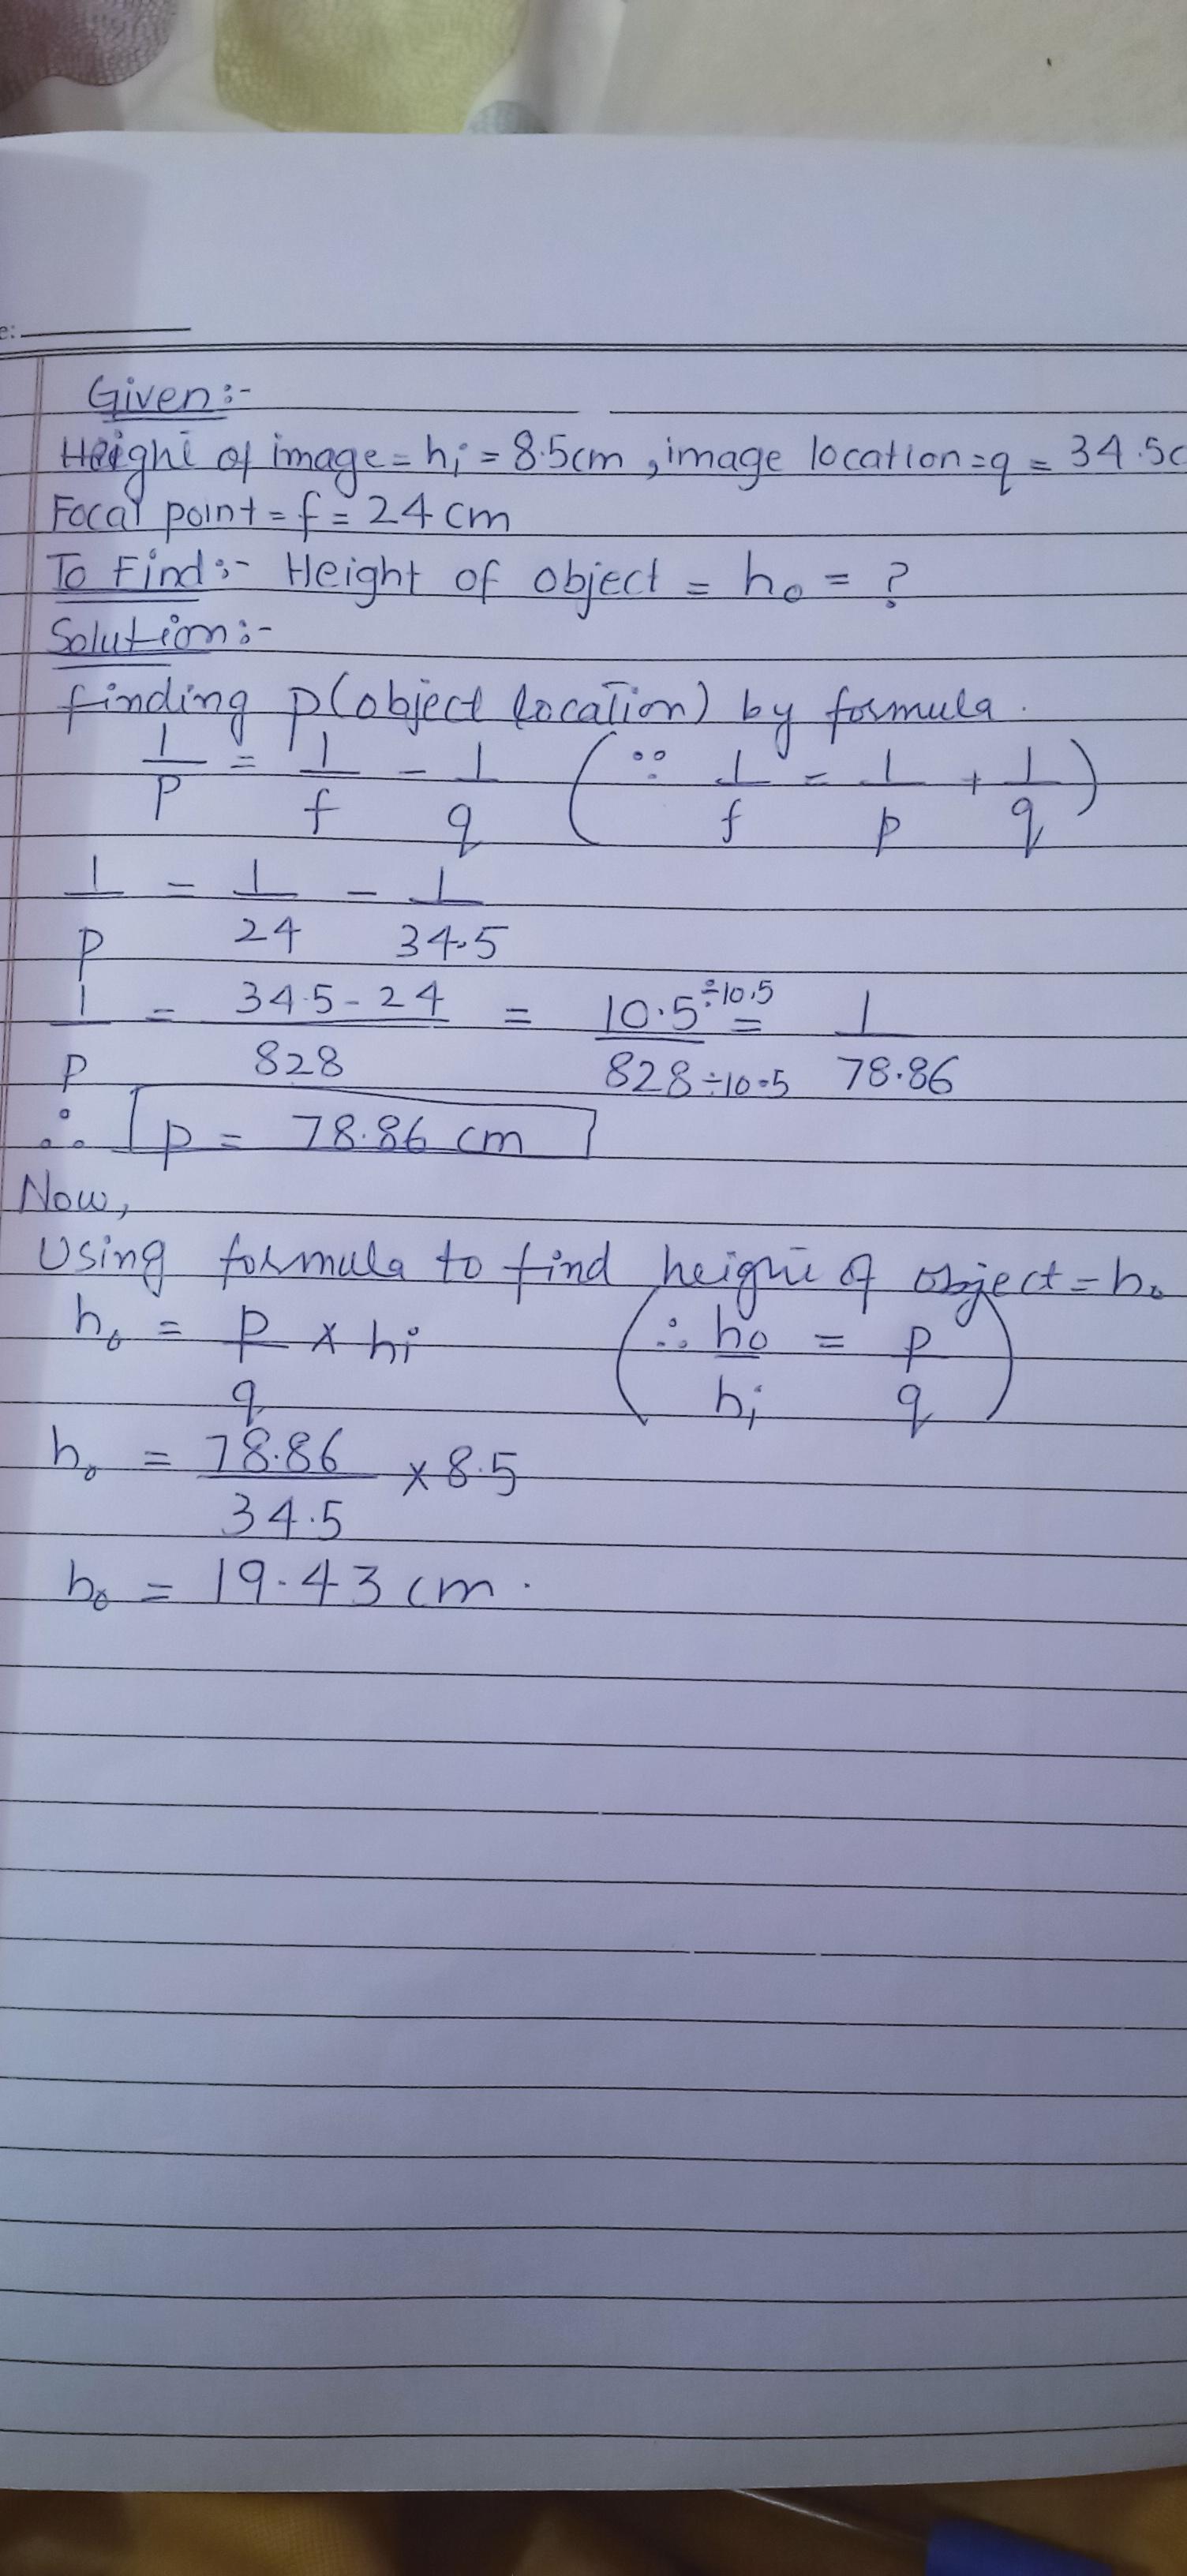 e:
Given:-
Height of image = hi = 8.5cm, image location = q = 34.5c
Focal point = f = 24 cm
To Find:- Height of object = ho = ?
Solution:-
finding p(object location) by formula.
1/p = 1/f - 1/q (∵ 1/f = 1/p + 1/q)
1/p = 1/24 - 1/34.5
1/p = 34.5-24/828 = 10.5÷10.5/828÷10.5 = 1/78.86
∴ p = 78.86 cm
Now,
Using formula to find height of object = ho
ho = p/q × hi (∴ ho/hi = p/q)
ho = 78.86/34.5 × 8.5
ho = 19.43 cm.